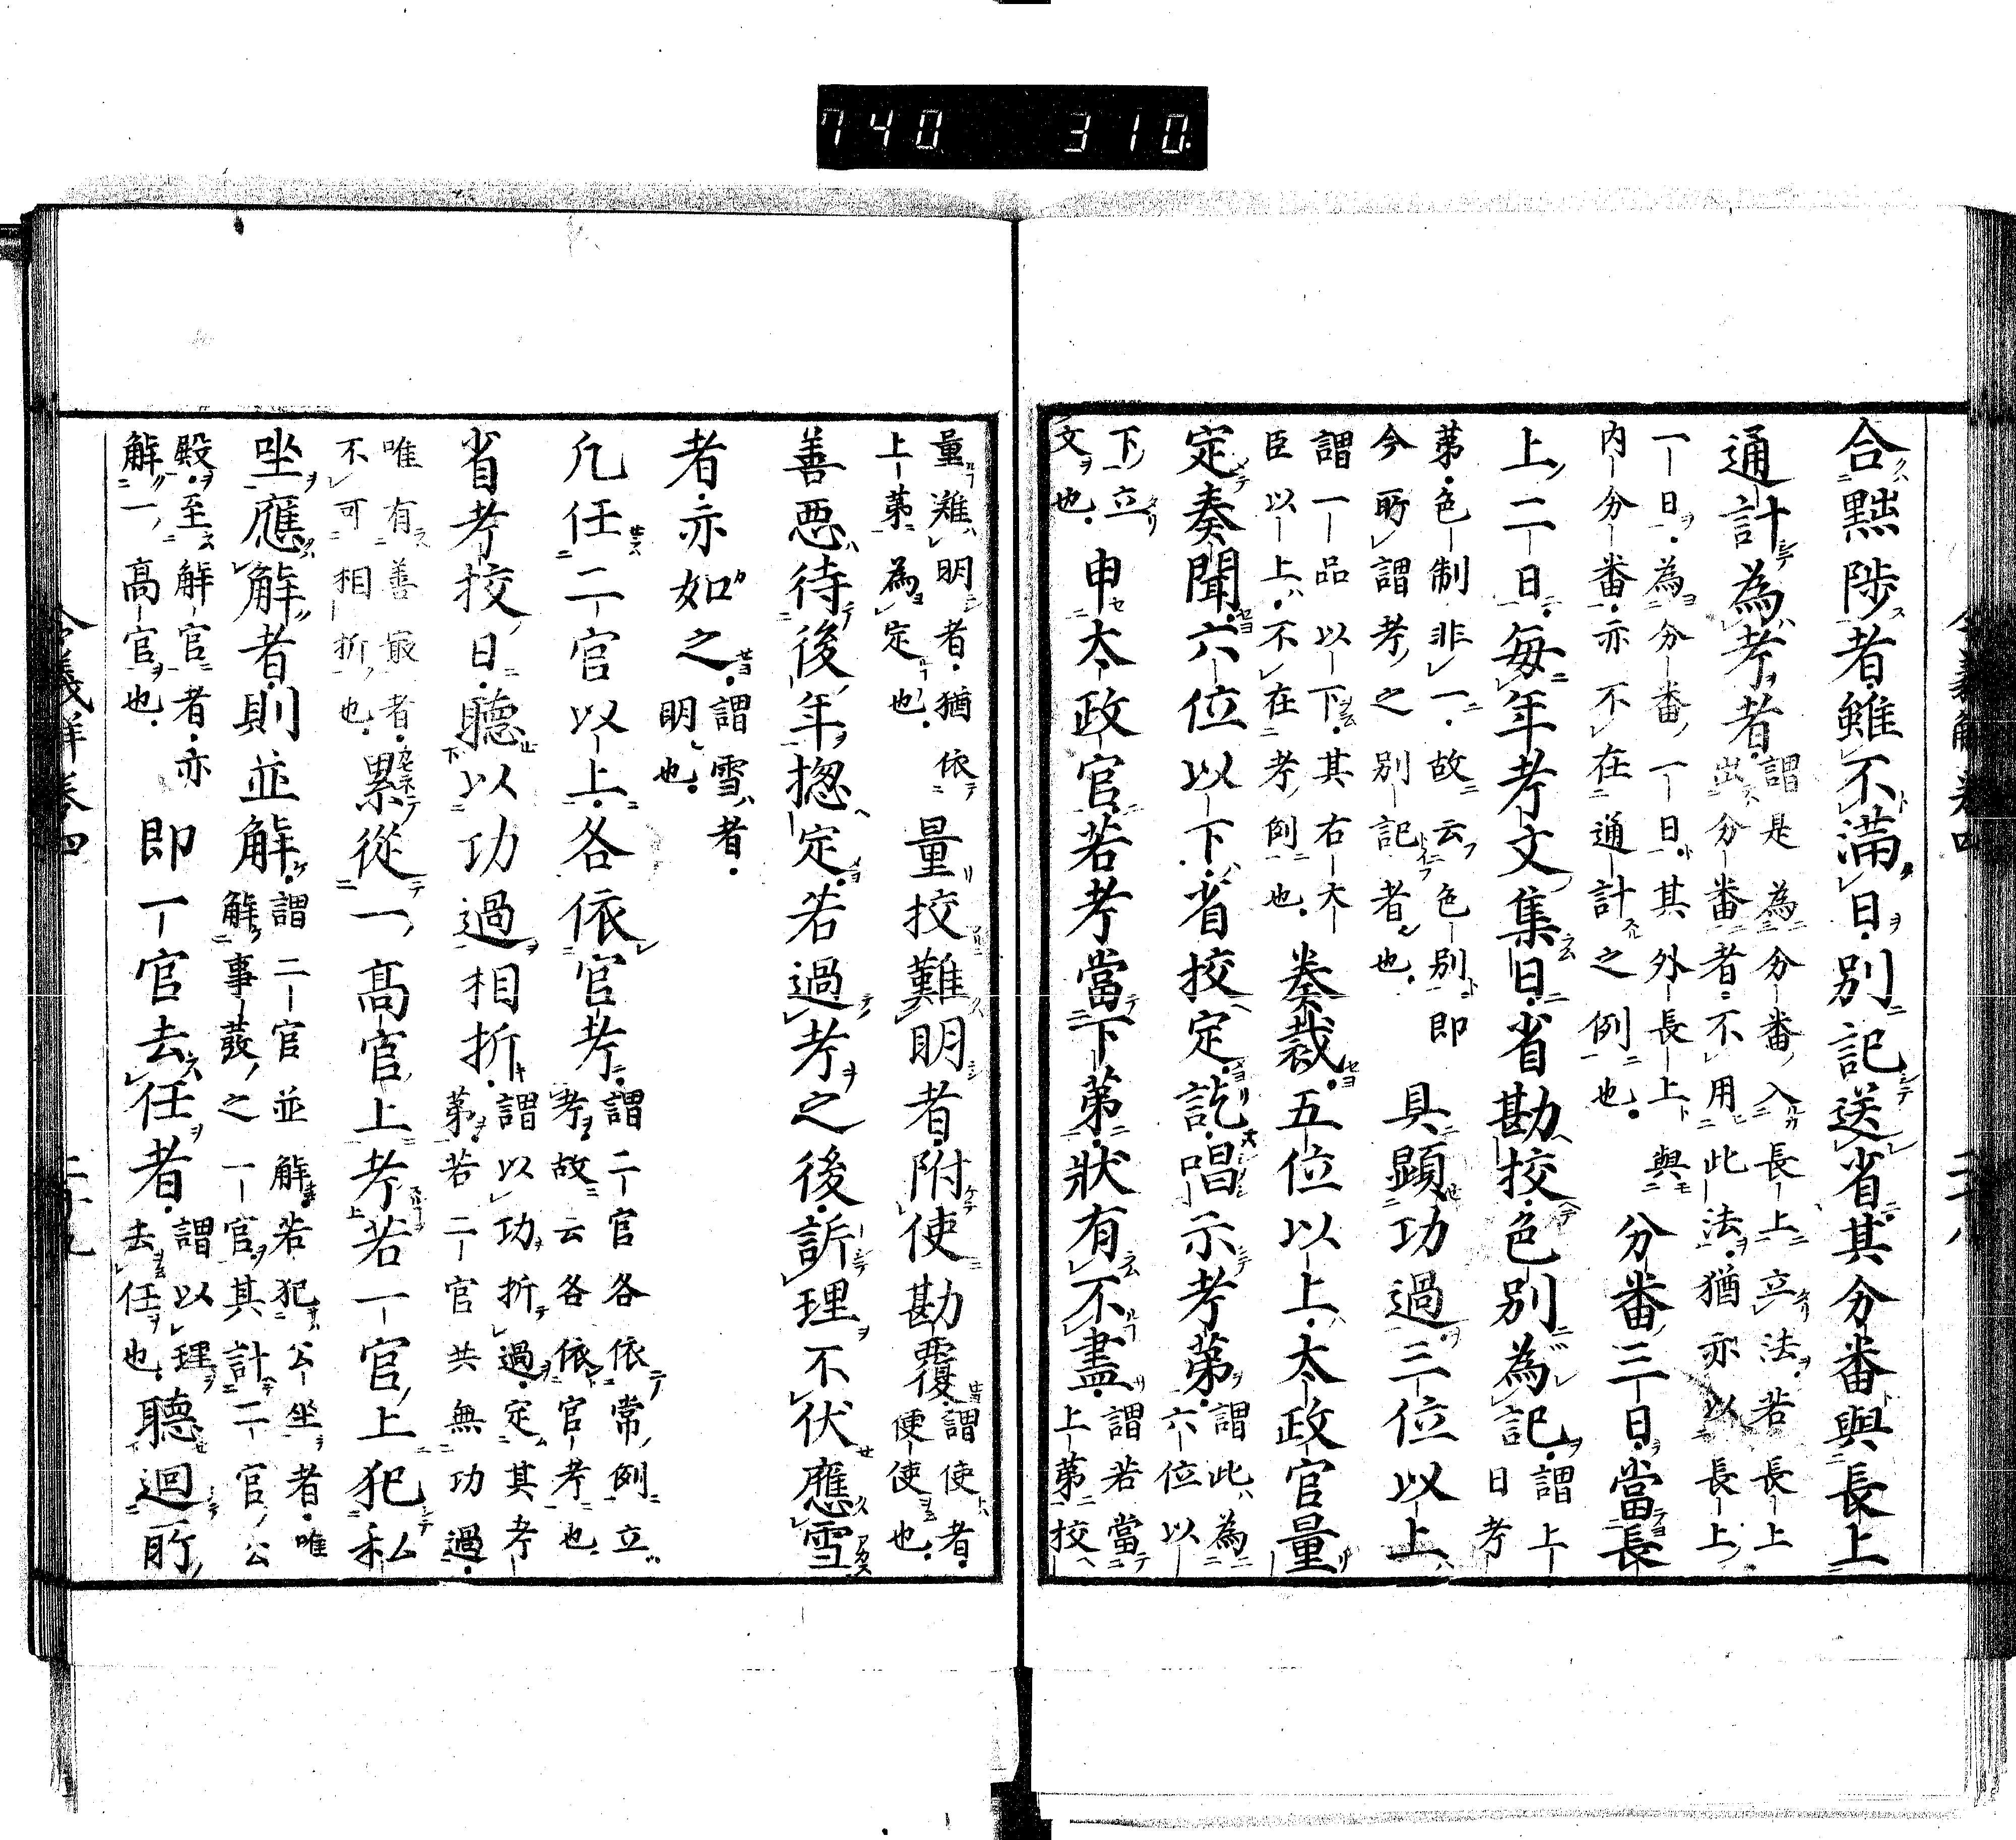 740 310
合黜陟者雖不滿日別記送省其分番與長上
通計為考者謂是為分番入長上立法若長上
出分番者不用此法猶亦以長上
一日為分番一日其外長上與
內分番亦不在通計之例也分番三日當長
上二日每年考文集日省勘挍色別為記謂上
日考
第色制非一故云色別即
今所謂考之別記者也具顯功過三位以上
謂一品以下其右大
臣以上不在考例也奏裁五位以上太政官量
定奏聞六位以下省挍定訖唱示考第謂此為
六位以
下立
文也申太政官若考當下第狀有不盡謂若當
上第挍
量難明者猶依
上第為定也量挍難明者附使勘覆謂使者
便使也
善惡待後年惣定若過考之後訴理不伏應雪
者亦如之謂雪者
明也
凢任二官以上各依官考謂二官各依常例立
考故云各依官考也
省考挍日聽以功過相折謂以功折過定其考
第若二官共無功過
唯有善最者
不可相折也累從一高官上考若一官上犯私
坐應解者則並解謂二官並解若犯公坐者唯
解事發之一官其計二官公
殿至解官者亦
解一高官也即一官去任者謂以理
去任也聽迴所
令義解卷四